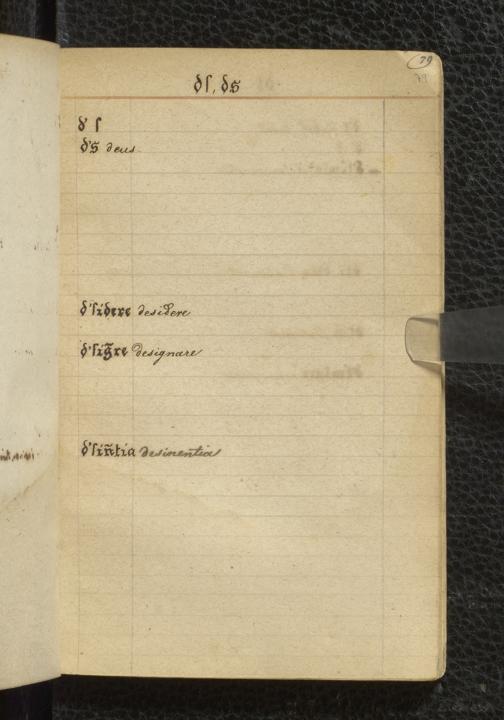 79
dſ, ds
d' ſ
d's deus
d'ſidere desidere
d'ſig̃re designare
d'ſiñtia desinentia